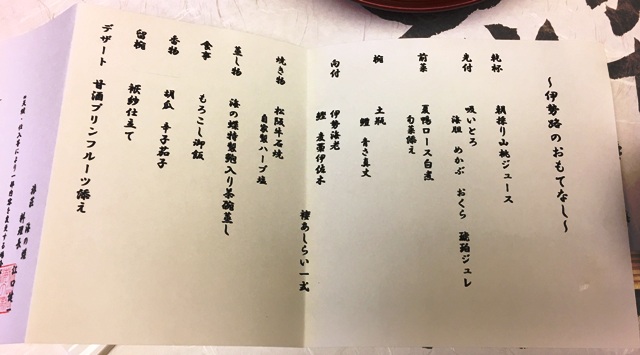 ~伊勢路のおもてなし~
乾杯 朝搾り山桃ジュース
先付 吸いとろ
海胆 めかぶ おくら 琥珀ジュレ
前菜 夏鴨ロース白煮
旬菜添え
椀 土瓶
鱧 青さ真丈
向付 伊勢海老
鰹 伊佐木
褄あしらい一式
焼き物 松阪牛石焼
自家製ハーブ塩
蒸し物 海の蝶特製鮑入り茶碗蒸し
食事 もろこし御飯
香物 胡瓜 辛子茄子
留椀 袱紗仕立て
デザート 甘酒プリンフルーツ添え
仕入等により一部内容を変更する場合
海の蝶
料理長 江口